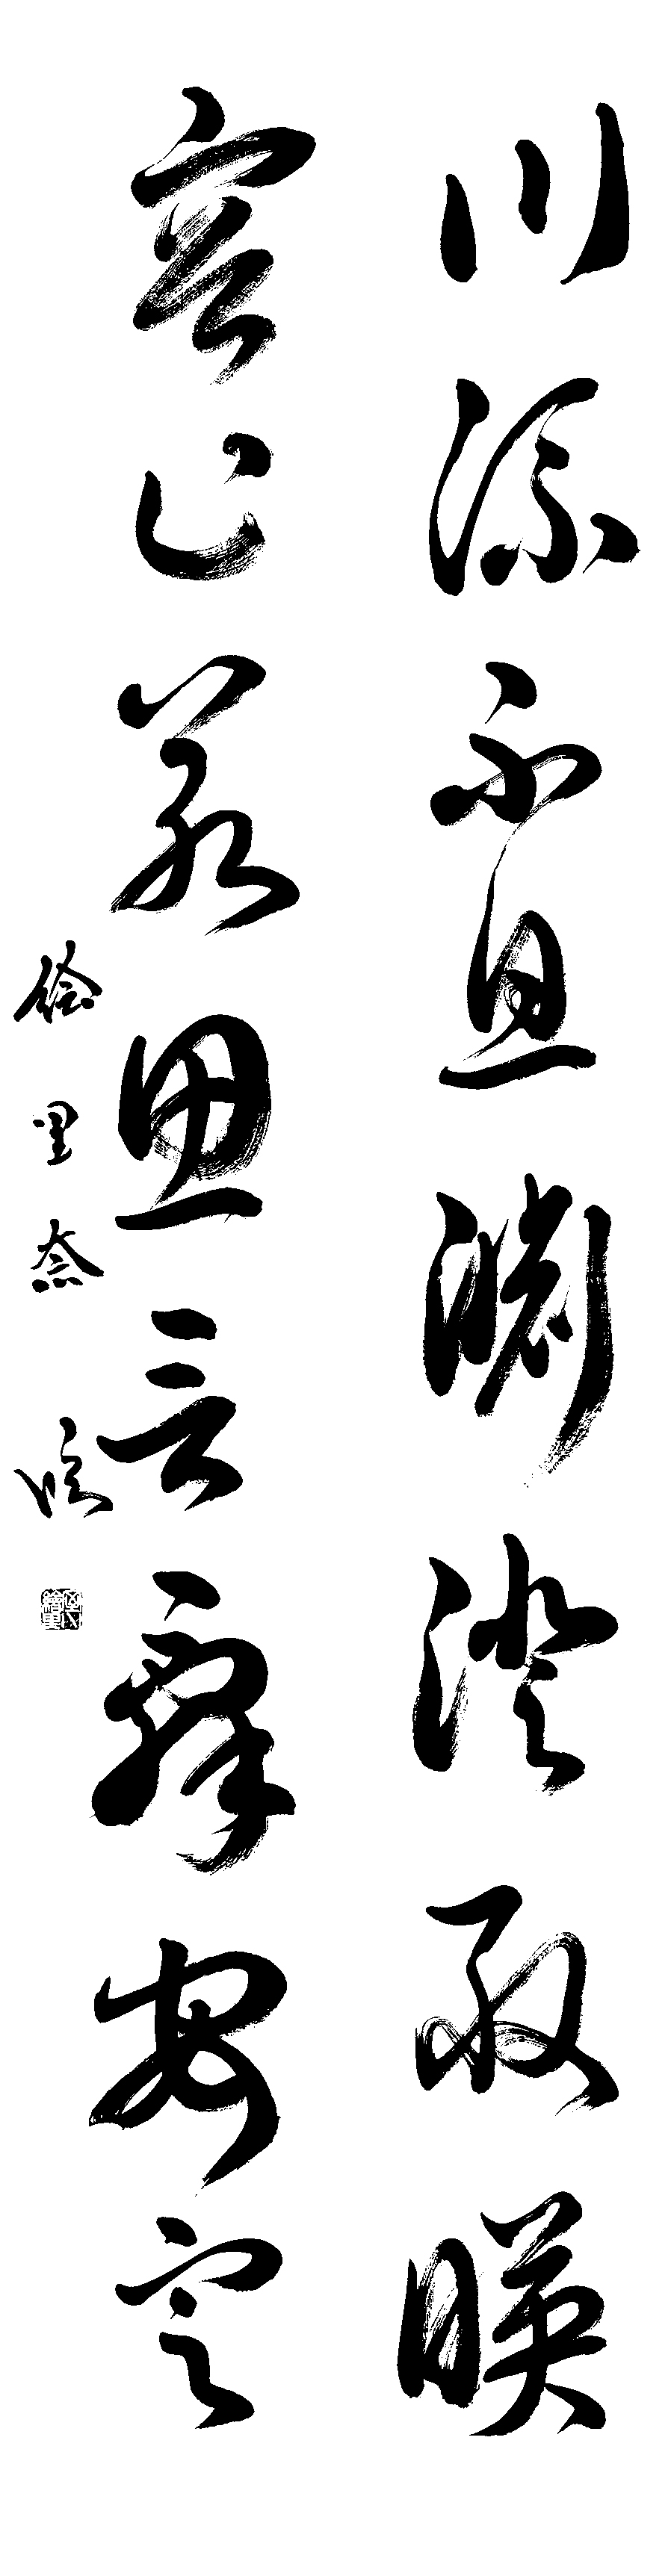 川流不息淵澄取暎
容止若思言辭安定
絵里奈 臨